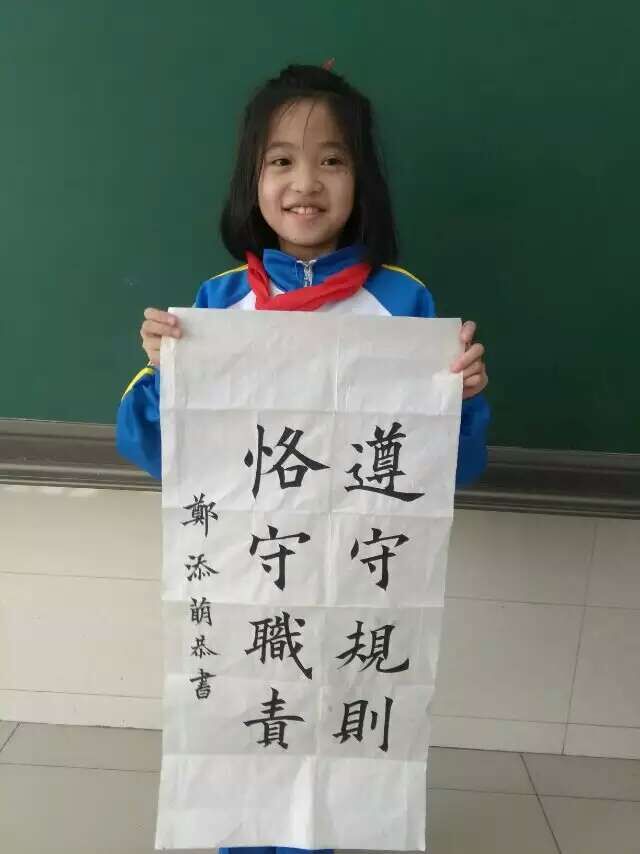 遵守規則
恪守職責
鄭添萌恭書